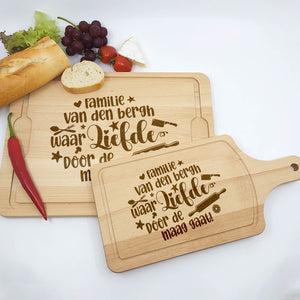 Familie
van den bergh
waar Liefde
door de
maag
Familie
van den bergh
waar Liefde
door de
maag gaat!